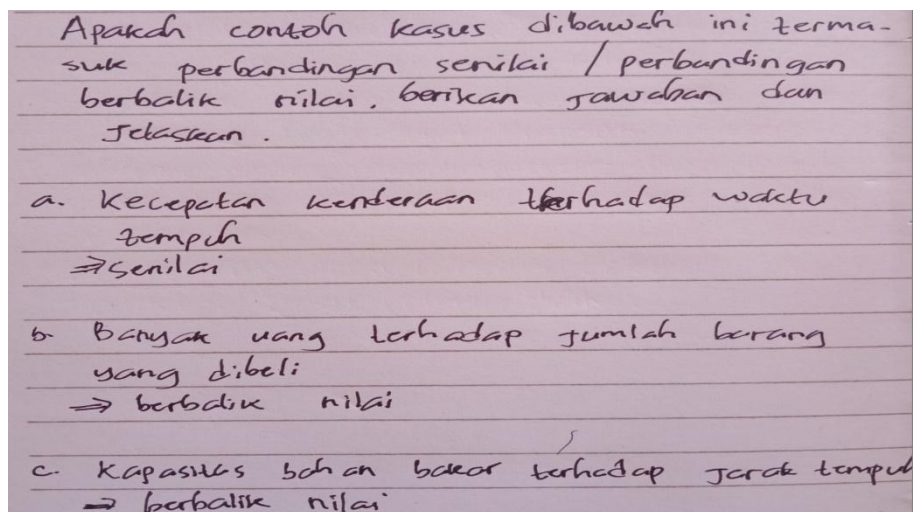 Apakah contoh kasus dibawah ini terma-
suk perbandingan senilai / perbandingan
berbalik nilai. berikan jawaban dan
Jelaskan.
a. Kecepatan kenderaan terhadap waktu
tempuh
⇒ senilai
b. Banyak uang terhadap jumlah barang
yang dibeli
⇒ berbalik nilai
c. Kapasitas bahan bakar terhadap Jarak tempuh
⇒ berbalik nilai